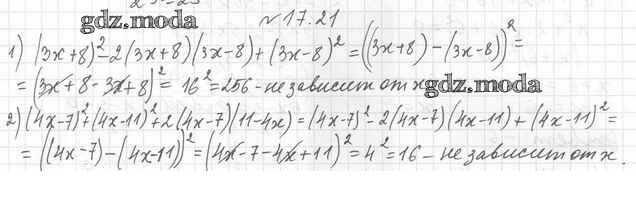 gdz.moda
№17.21
1) (3x+8)²-2(3x+8)(3x-8)+(3x-8)²=((3x+8)-(3x-8))²=
=(3x+8-3x+8)²=16²=256-не зависит от x gdz.moda
2)(4x-7)²+(4x-11)²+2(4x-7)(11-4x)=(4x-7)²-2(4x-7)(4x-11)+(4x-11)²=
=((4x-7)-(4x-11))²=(4x-7-4x+11)²=4²=16-не зависит от x.